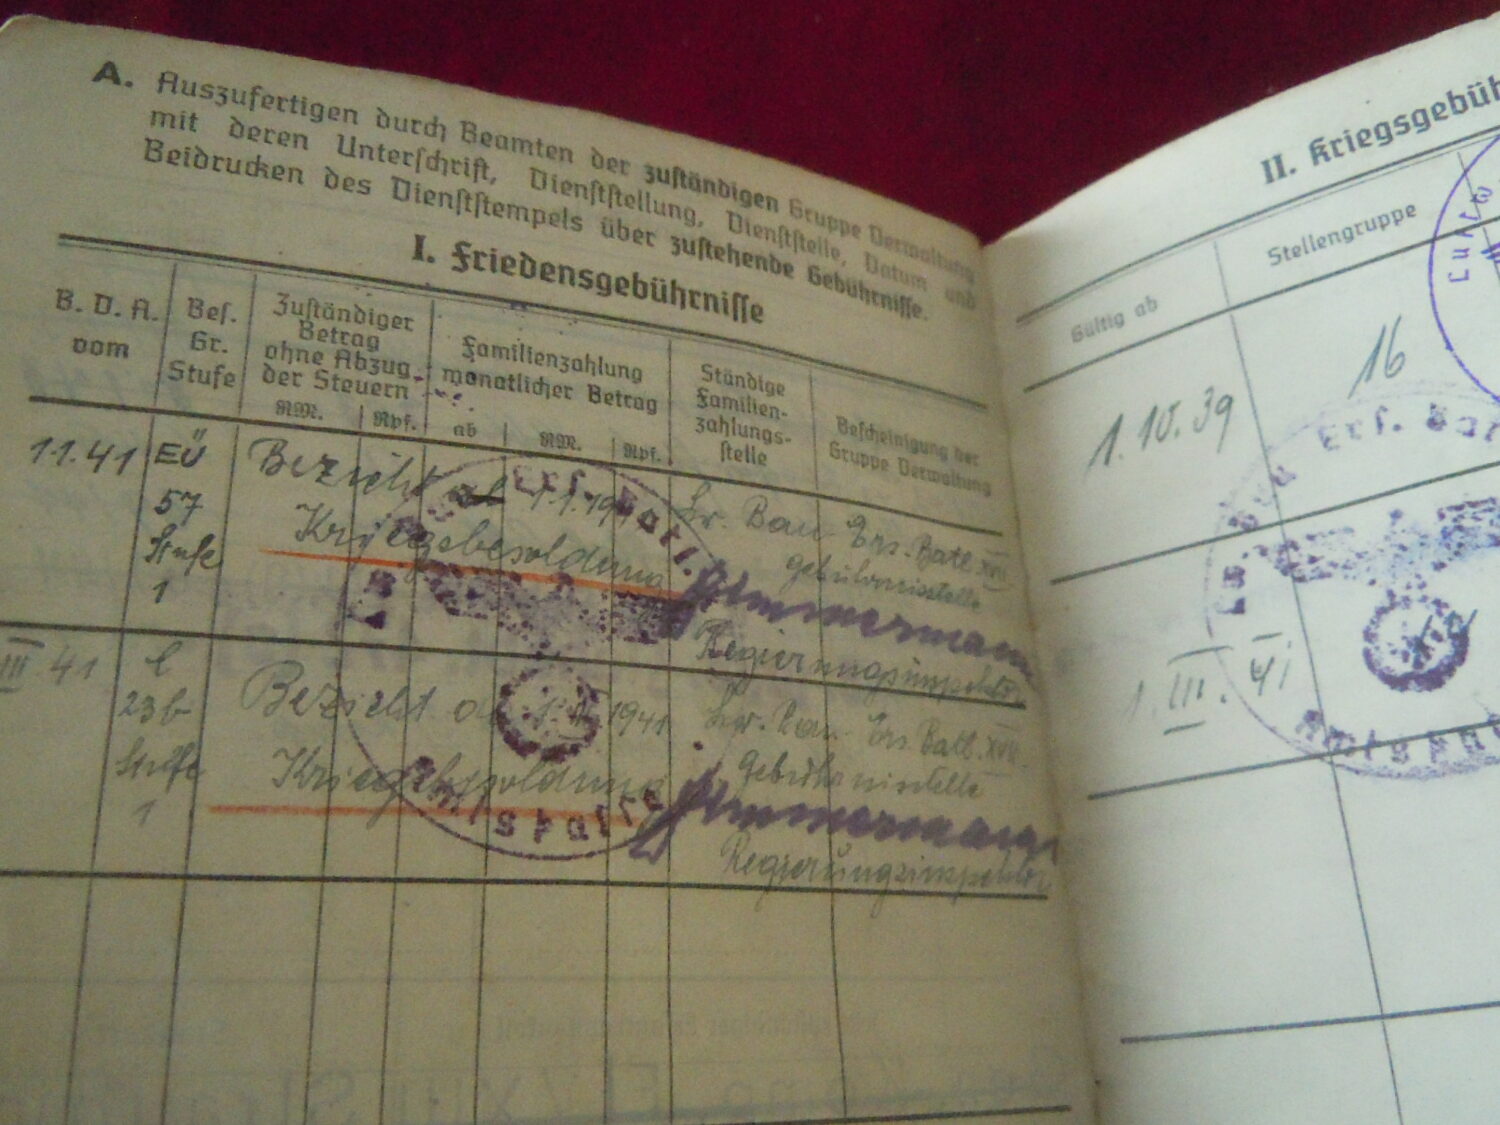 A. Auszufertigen durch Beamten der zuständigen Gruppe Verwaltung
mit deren Unterschrift, Dienststellung, Dienststelle, Datum und
Beidrucken des Dienststempels über zustehende Gebührnisse.
I. Friedensgebührnisse
B. D. A.
vom
Bes.
Gr.
Stufe
Zuständiger
Betrag
ohne Abzug
der Steuern
RM.
Rpf.
Familienzahlung
monatlicher Betrag
ab
RM.
Rpf.
Ständige
Familien-
zahlungs-
stelle
Bescheinigung der
Gruppe Verwaltung
1.1.41
EÜ
57
Stufe
1
Bezieht ab 1.1.19
Kriegsbesoldung
Bau Ers. Batl. XVII
Gebührnisstelle
Zimmermann
Regierungsinspektor
III. 41
23b
Stufe
1
Bezieht 1941
Kriegsbesoldung
Bau Ers. Batl. XVII
Gebührnisstelle
Zimmermann
Regierungsinspektor
Ers. Batl.
II. Kriegsgebüh
Gültig ab
Stellengruppe
1. 10. 39
16
1. III. 41
Bau Ers. Bat